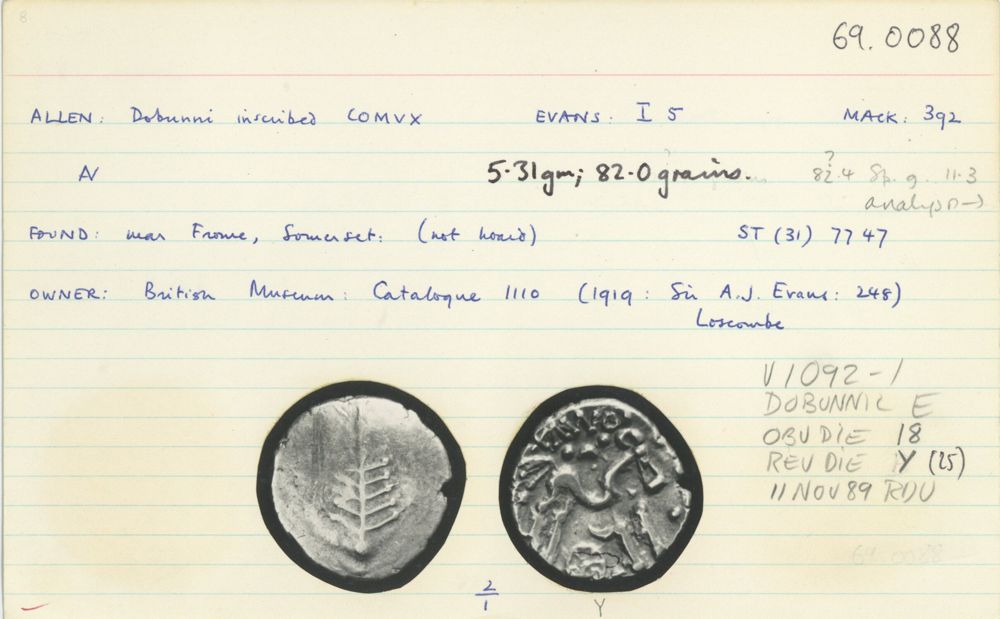 8
69.0088
ALLEN: Dobunni inscribed COMVX EVANS: I 5 MACK: 392
AV 5.31gm; 82.0 grains. ? 82.4 Sp. g. 11.3
analysis→
FOUND: near Frome, Somerset: (not hoard) ST (31) 77 47
OWNER: British Museum: Catalogue 1110 (1919: Sir A.J. Evans: 248)
Loscombe
V1092-1
DOBUNNIC E
OBV DIE 18
REV DIE Y (25)
11 NOV 89 RDV
69.0088
2/1 Y